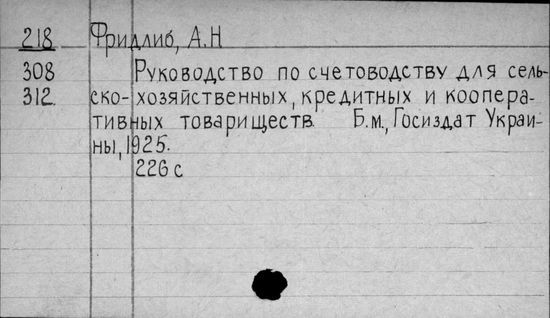 218 Фридлиб, А.Н
308 Руководство по счетоводству для сель-
312. ско-хозяйственных, кредитных и коопера-
тивных товариществ. Б.м., Госиздат Украи-
ны, 1925.
226 с